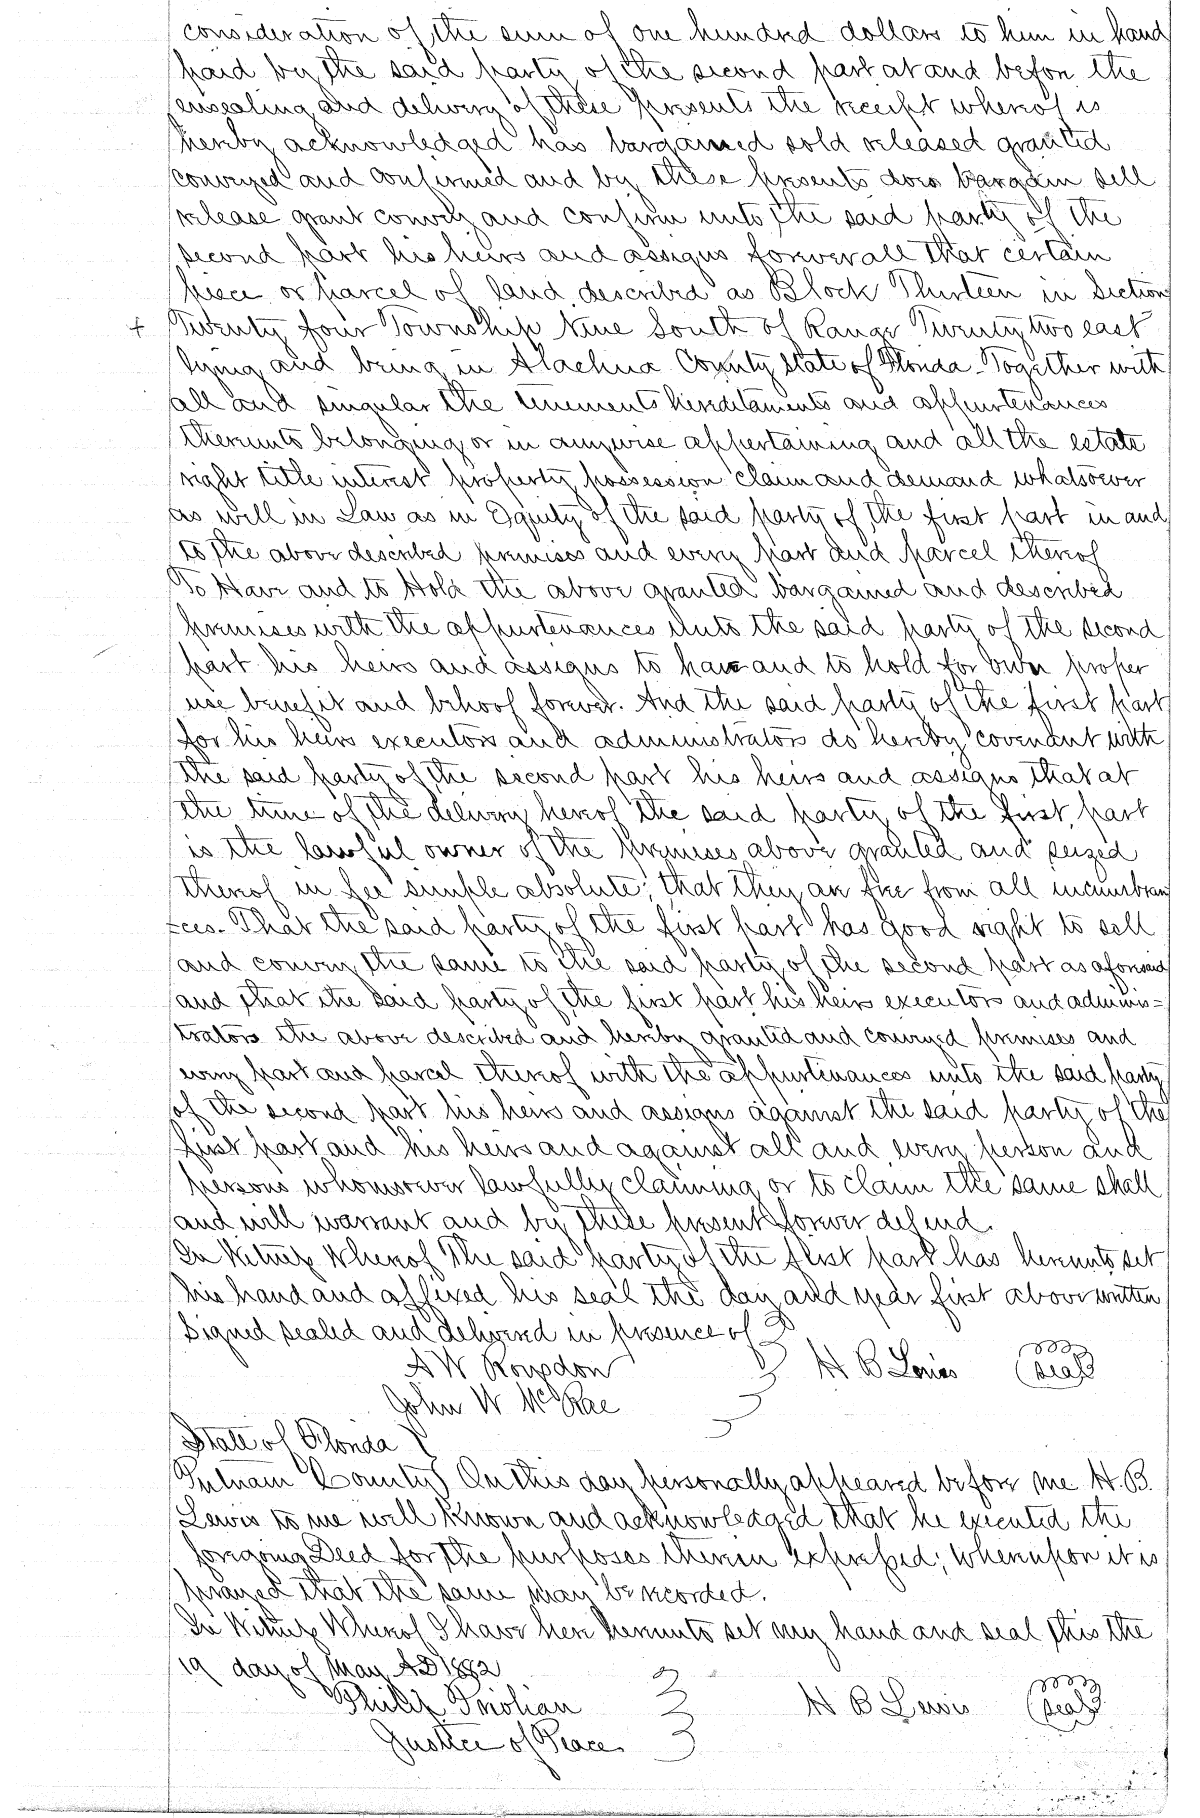 consideration of the sum of one hundred dollars to him in hand
paid by the said party of the second part at and before the
ensealing and delivery of these presents the receipt whereof is
hereby acknowledged has bargained sold released granted
conveyed and confirmed and by these presents does bargain sell
release grant convey and confirm unto the said party of the
second part his heirs and assigns forever all that certain
piece or parcel of land described as Block Thirteen in Section
+ Twenty four Township Nine South of Range Twenty two east
lying and being in Alachua County State of Florida - Together with
all and singular the tenements hereditaments and appurtenances
thereunto belonging or in anywise appertaining and all the estate
right title interest property possession claim and demand whatsoever
as well in Law as in Equity of the said party of the first part in and
to the above described premises and every part and parcel thereof
To Have and to Hold the above granted bargained and described
premises with the appurtenances unto the said party of the second
part his heirs and assigns to have and to hold for own proper
use benefit and behoof forever. And the said party of the first part
for his heirs executors and administrators do hereby covenant with
the said party of the second part his heirs and assigns that at
the time of the delivery hereof the said party of the first part
is the lawful owner of the premises above granted and seized
thereof in fee simple absolute; that they are free from all incumbran
=ces. That the said party of the first part has good right to sell
and convey the same to the said party of the second part as aforesaid
and that the said party of the first part his heirs executors and adminis=
trators the above described and hereby granted and conveyed premises and
every part and parcel thereof with the appurtenances unto the said party
of the second part his heirs and assigns against the said party of the
first part and his heirs and against all and every person and
persons whomsoever lawfully claiming or to claim the same shall
and will warrant and by these present forever defend.
In Witness Whereof The said party of the first part has hereunto set
his hand and affixed his seal the day and year first above written
Signed sealed and delivered in presence of
A W H B Lewis (seal)
John W McRae
State of Florida
Putnam County On this day personally appeared before me H. B.
Lewis to me well known and acknowledged that he executed the
foregoing Deed for the purposes therein expressed; Whereupon it is
prayed that the same may be recorded.
In Witness Whereof I have here hereunto set my hand and seal this the
19 day of May AD 1882
Philip H B Lewis (seal)
Justice of Peace